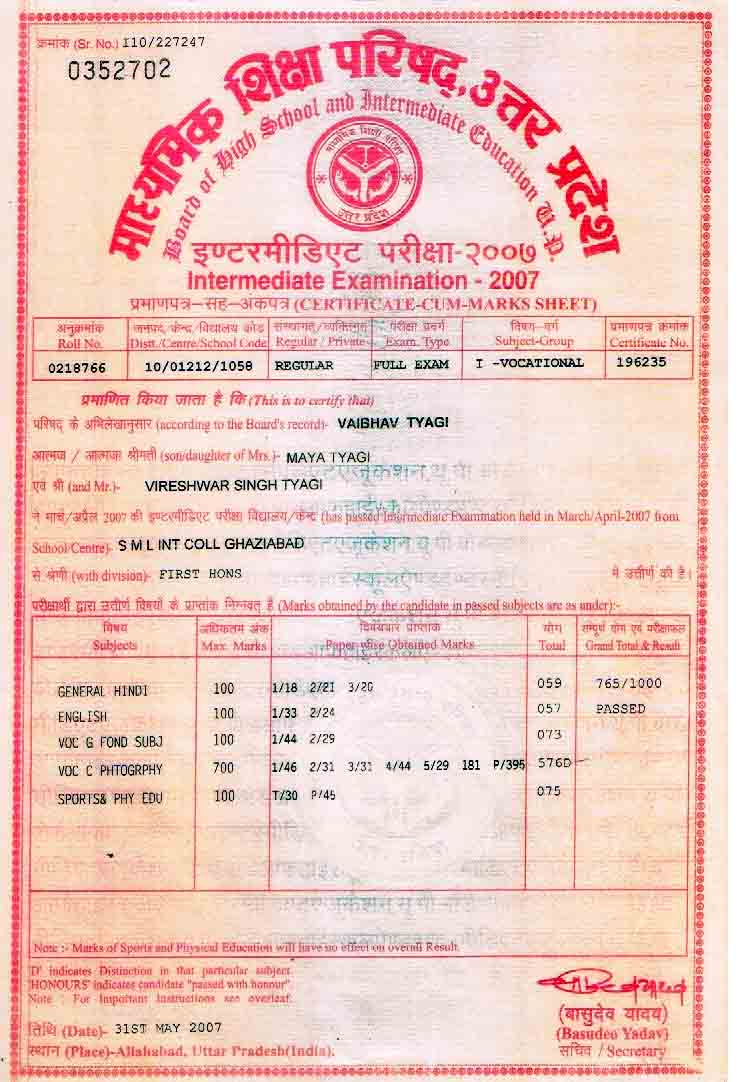 क्रमांक (Sr. No.) I10/227247
0352702
माध्यमिक शिक्षा परिषद्, उत्तर प्रदेश
Board of High School and Intermediate Education U.P.
माध्यमिक शिक्षा परिषद
उत्तर प्रदेश
इण्टरमीडिएट परीक्षा-२००७
Intermediate Examination - 2007
प्रमाणपत्र-सह-अंकपत्र (CERTIFICATE-CUM-MARKS SHEET)
अनुक्रमांक जनपद/केन्द्र/विद्यालय कोड संस्थागत/व्यक्तिगत परीक्षा प्रवर्ग विषय-वर्ग प्रमाणपत्र क्रमांक
Roll No. Distt./Centre/School Code Regular / Private Exam. Type Subject-Group Certificate No.
0218766 10/01212/1058 REGULAR FULL EXAM I -VOCATIONAL 196235
प्रमाणित किया जाता है कि (This is to certify that)
परिषद् के अभिलेखानुसार (according to the Board's record)- VAIBHAV TYAGI
आत्मज / आत्मजा श्रीमती (son/daughter of Mrs.)- MAYA TYAGI
एवं श्री (and Mr.)- VIRESHWAR SINGH TYAGI
ने मार्च/अप्रैल 2007 की इण्टरमीडिएट परीक्षा विद्यालय/केन्द्र (has passed Intermediate Examination held in March/April-2007 from
School/Centre)- S M L INT COLL GHAZIABAD
से श्रेणी (with division)- FIRST HONS में उत्तीर्ण की है।
परीक्षार्थी द्वारा उत्तीर्ण विषयों के प्राप्तांक निम्नवत् हैं (Marks obtained by the candidate in passed subjects are as under):-
विषय अधिकतम अंक विषयवार प्राप्तांक योग सम्पूर्ण योग एवं परीक्षाफल
Subjects Max. Marks Paper wise Obtained Marks Total Grand Total & Result
GENERAL HINDI 100 1/18 2/21 3/20 059 765/1000
ENGLISH 100 1/33 2/24 057 PASSED
VOC G FOND SUBJ 100 1/44 2/29 073
VOC C PHTOGRPHY 700 1/46 2/31 3/31 4/44 5/29 181 P/395 576D
SPORTS& PHY EDU 100 T/30 P/45 075
Note :- Marks of Sports and Physical Education will have no effect on overall Result.
'D' indicates Distinction in that particular subject.
'HONOURS' indicates candidate "passed with honour".
Note : For Important Instructions see overleaf.
तिथि (Date)- 31ST MAY 2007
स्थान (Place)-Allahabad, Uttar Pradesh(India).
(बासुदेव यादव)
(Basudeo Yadav)
सचिव / Secretary